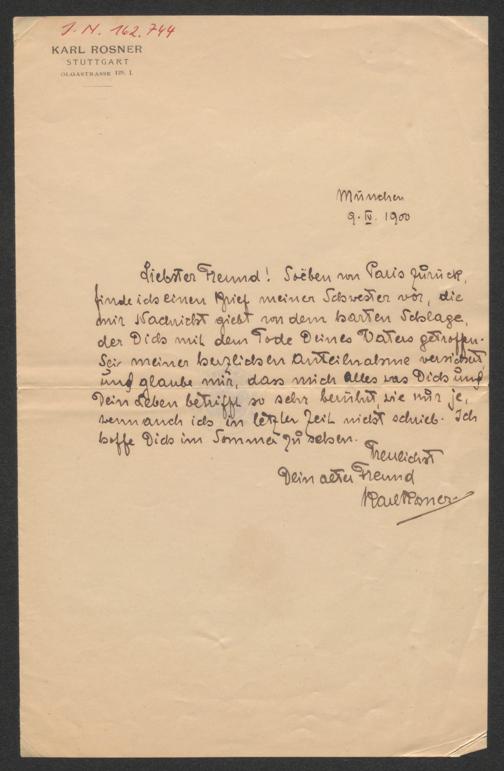 J. N. 162.744
KARL ROSNER
STUTTGART
OLGASTRASSE 121. I.
München
9. IV. 1900
Liebster Freund! Soëben von Paris zurück,
finde ich einen Brief meiner Schwester vor, die
mir Nachricht giebt von dem harten Schlage,
der Dich mit dem Tode Deines Vaters getroffen.
Sei meiner herzlichsen Anteilnahme versichert
und glaube mir, dass mich alles was Dich und
Dein Leben betrifft so sehr berührt wie nur je,
wenn auch ich in letzter Zeit nicht schrieb. Ich
hoffe Dich im Sommer zu sehen.
Treulichst
Dein alter Freund
Karl Rosner